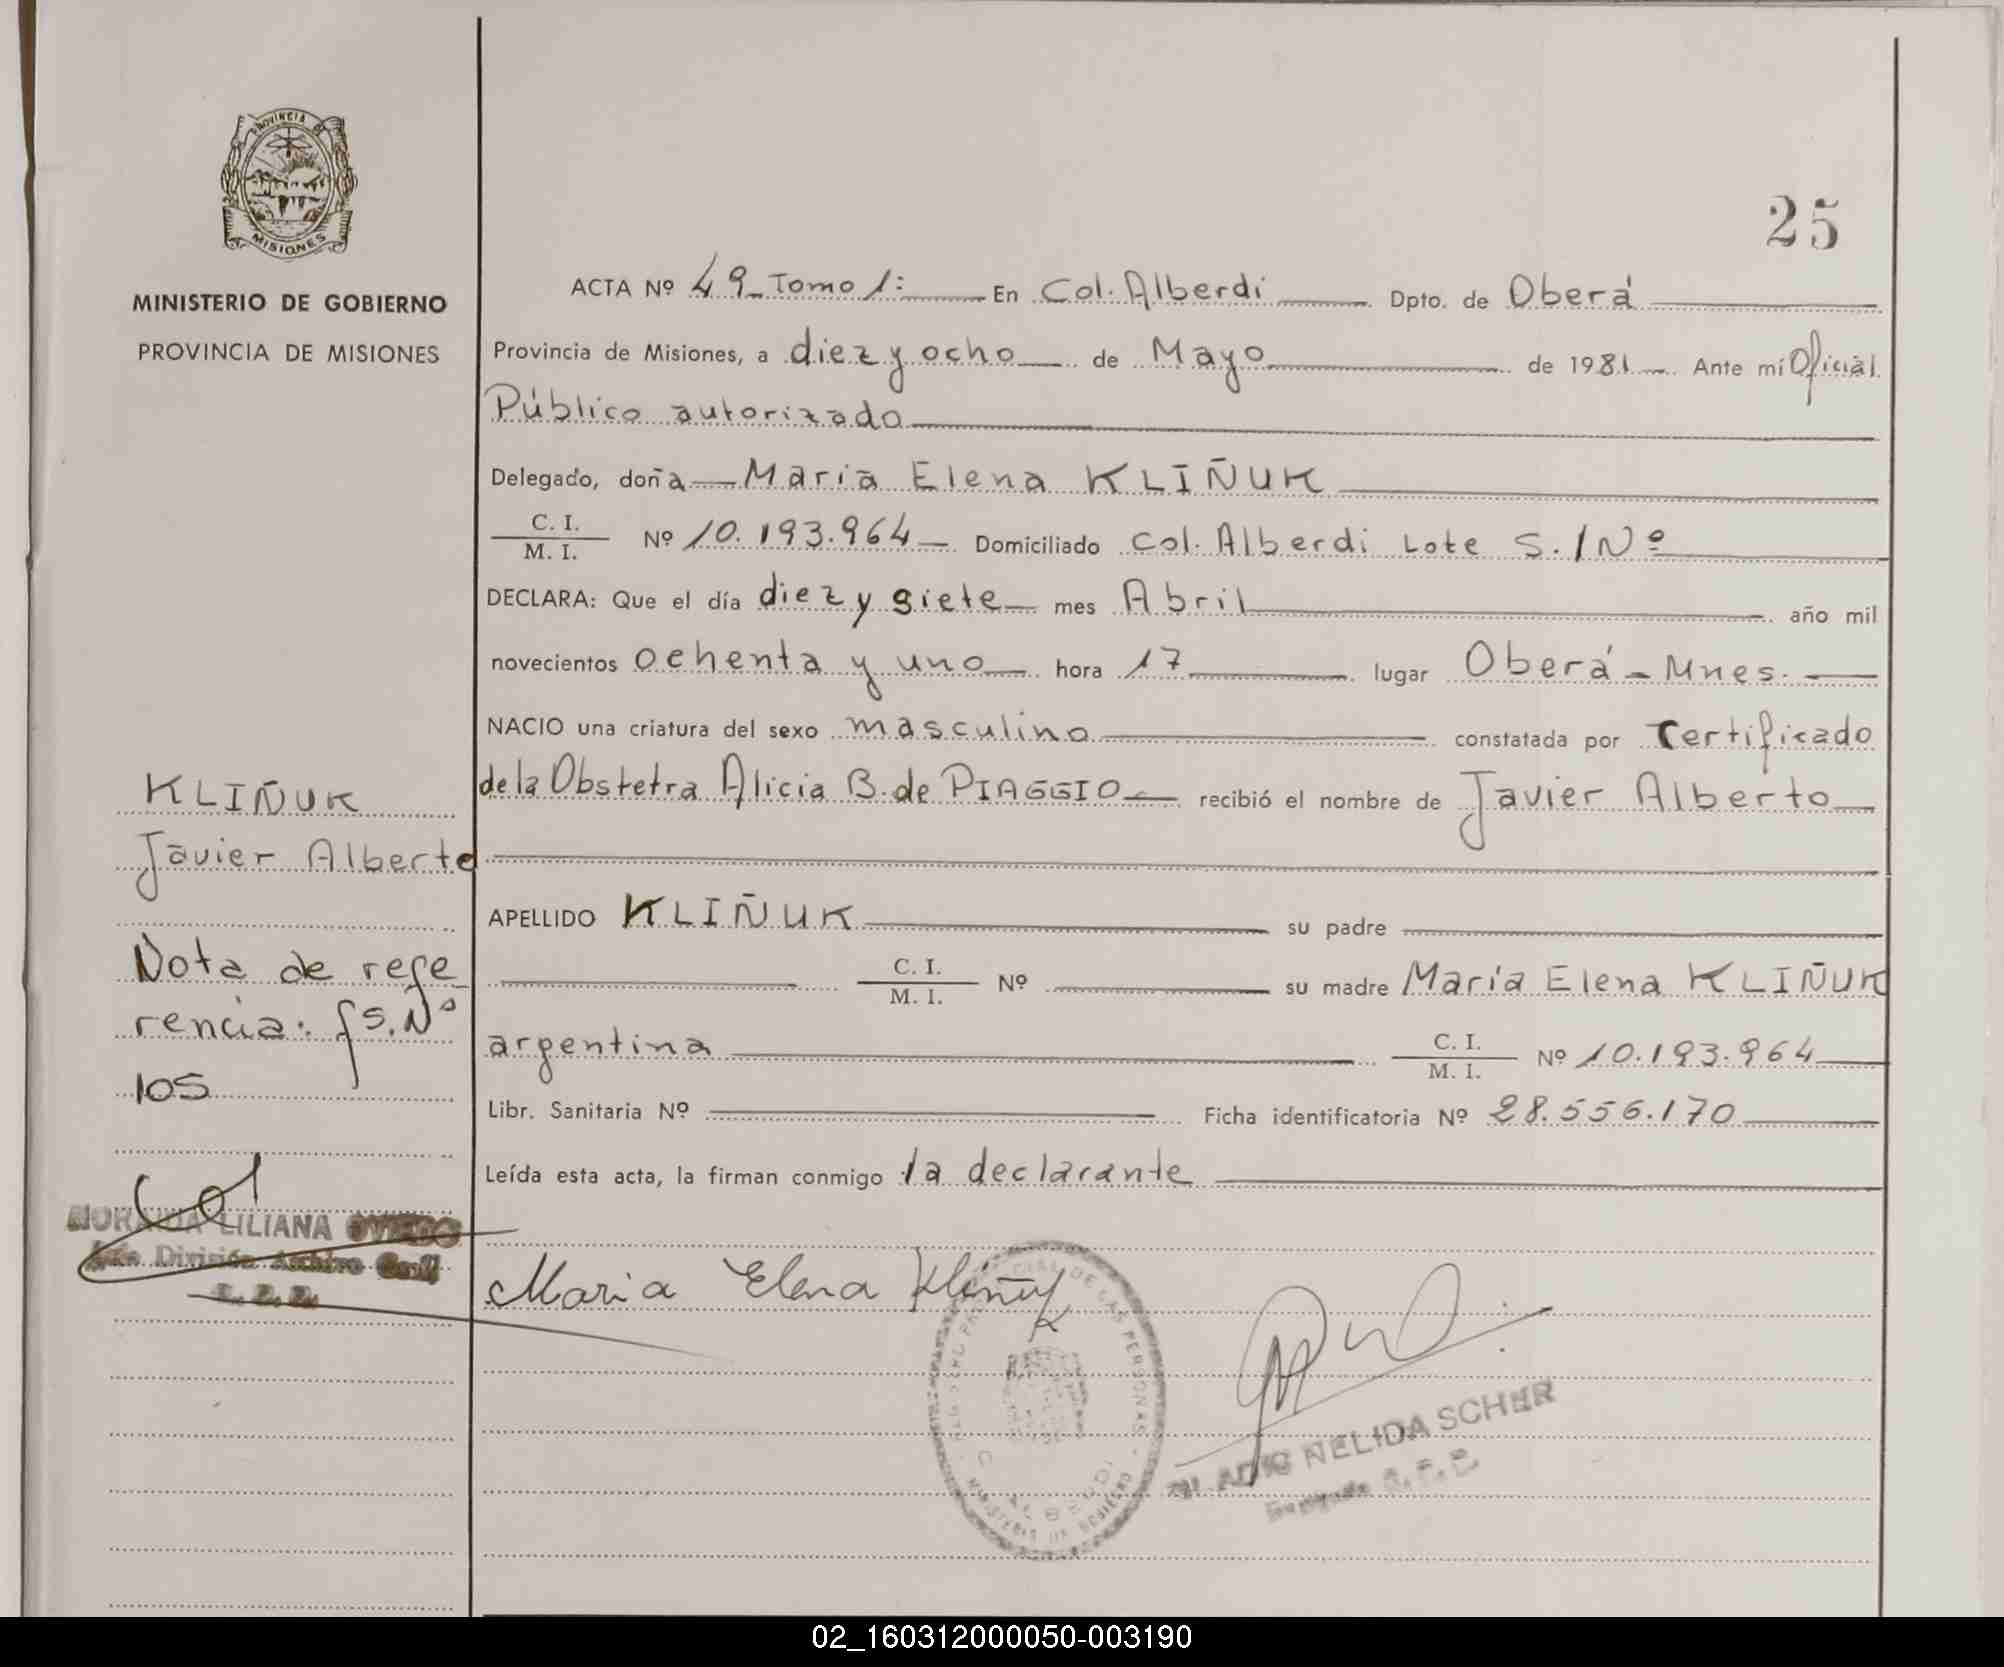 PROVINCIA DE
MISIONES
MINISTERIO DE GOBIERNO
PROVINCIA DE MISIONES
25
ACTA Nº 49_Tomo 1: En Col. Alberdi Dpto. de Oberá
Provincia de Misiones, a diez y ocho de Mayo de 1981 Ante mí Oficial
Público autorizado
Delegado, doña María Elena KLIÑUK
C. I.
M. I. Nº 10.193.964 Domiciliado Col. Alberdi Lote S./Nº
DECLARA: Que el día diez y siete mes Abril año mil
novecientos ochenta y uno hora 17 lugar Oberá - Mnes.
NACIO una criatura del sexo masculino constatada por Certificado
de la Obstetra Alicia B. de PIAGGIO recibió el nombre de Javier Alberto
APELLIDO KLIÑUK su padre
C. I.
M. I. Nº su madre María Elena KLIÑUK
argentina C. I.
M. I. Nº 10.193.964
Libr. Sanitaria Nº Ficha identificatoria Nº 28.556.170
Leída esta acta, la firman conmigo la declarante
Maria Elena Kliñuk
KLIÑUK
Javier Alberto
Nota de refe
rencia: fs. Nº
105
LILIANA OVIEDO
División Archivo Gral
DE LAS PERSONAS
MINISTERIO DE GOBIERNO
NELIDA SCHER
02_160312000050-003190